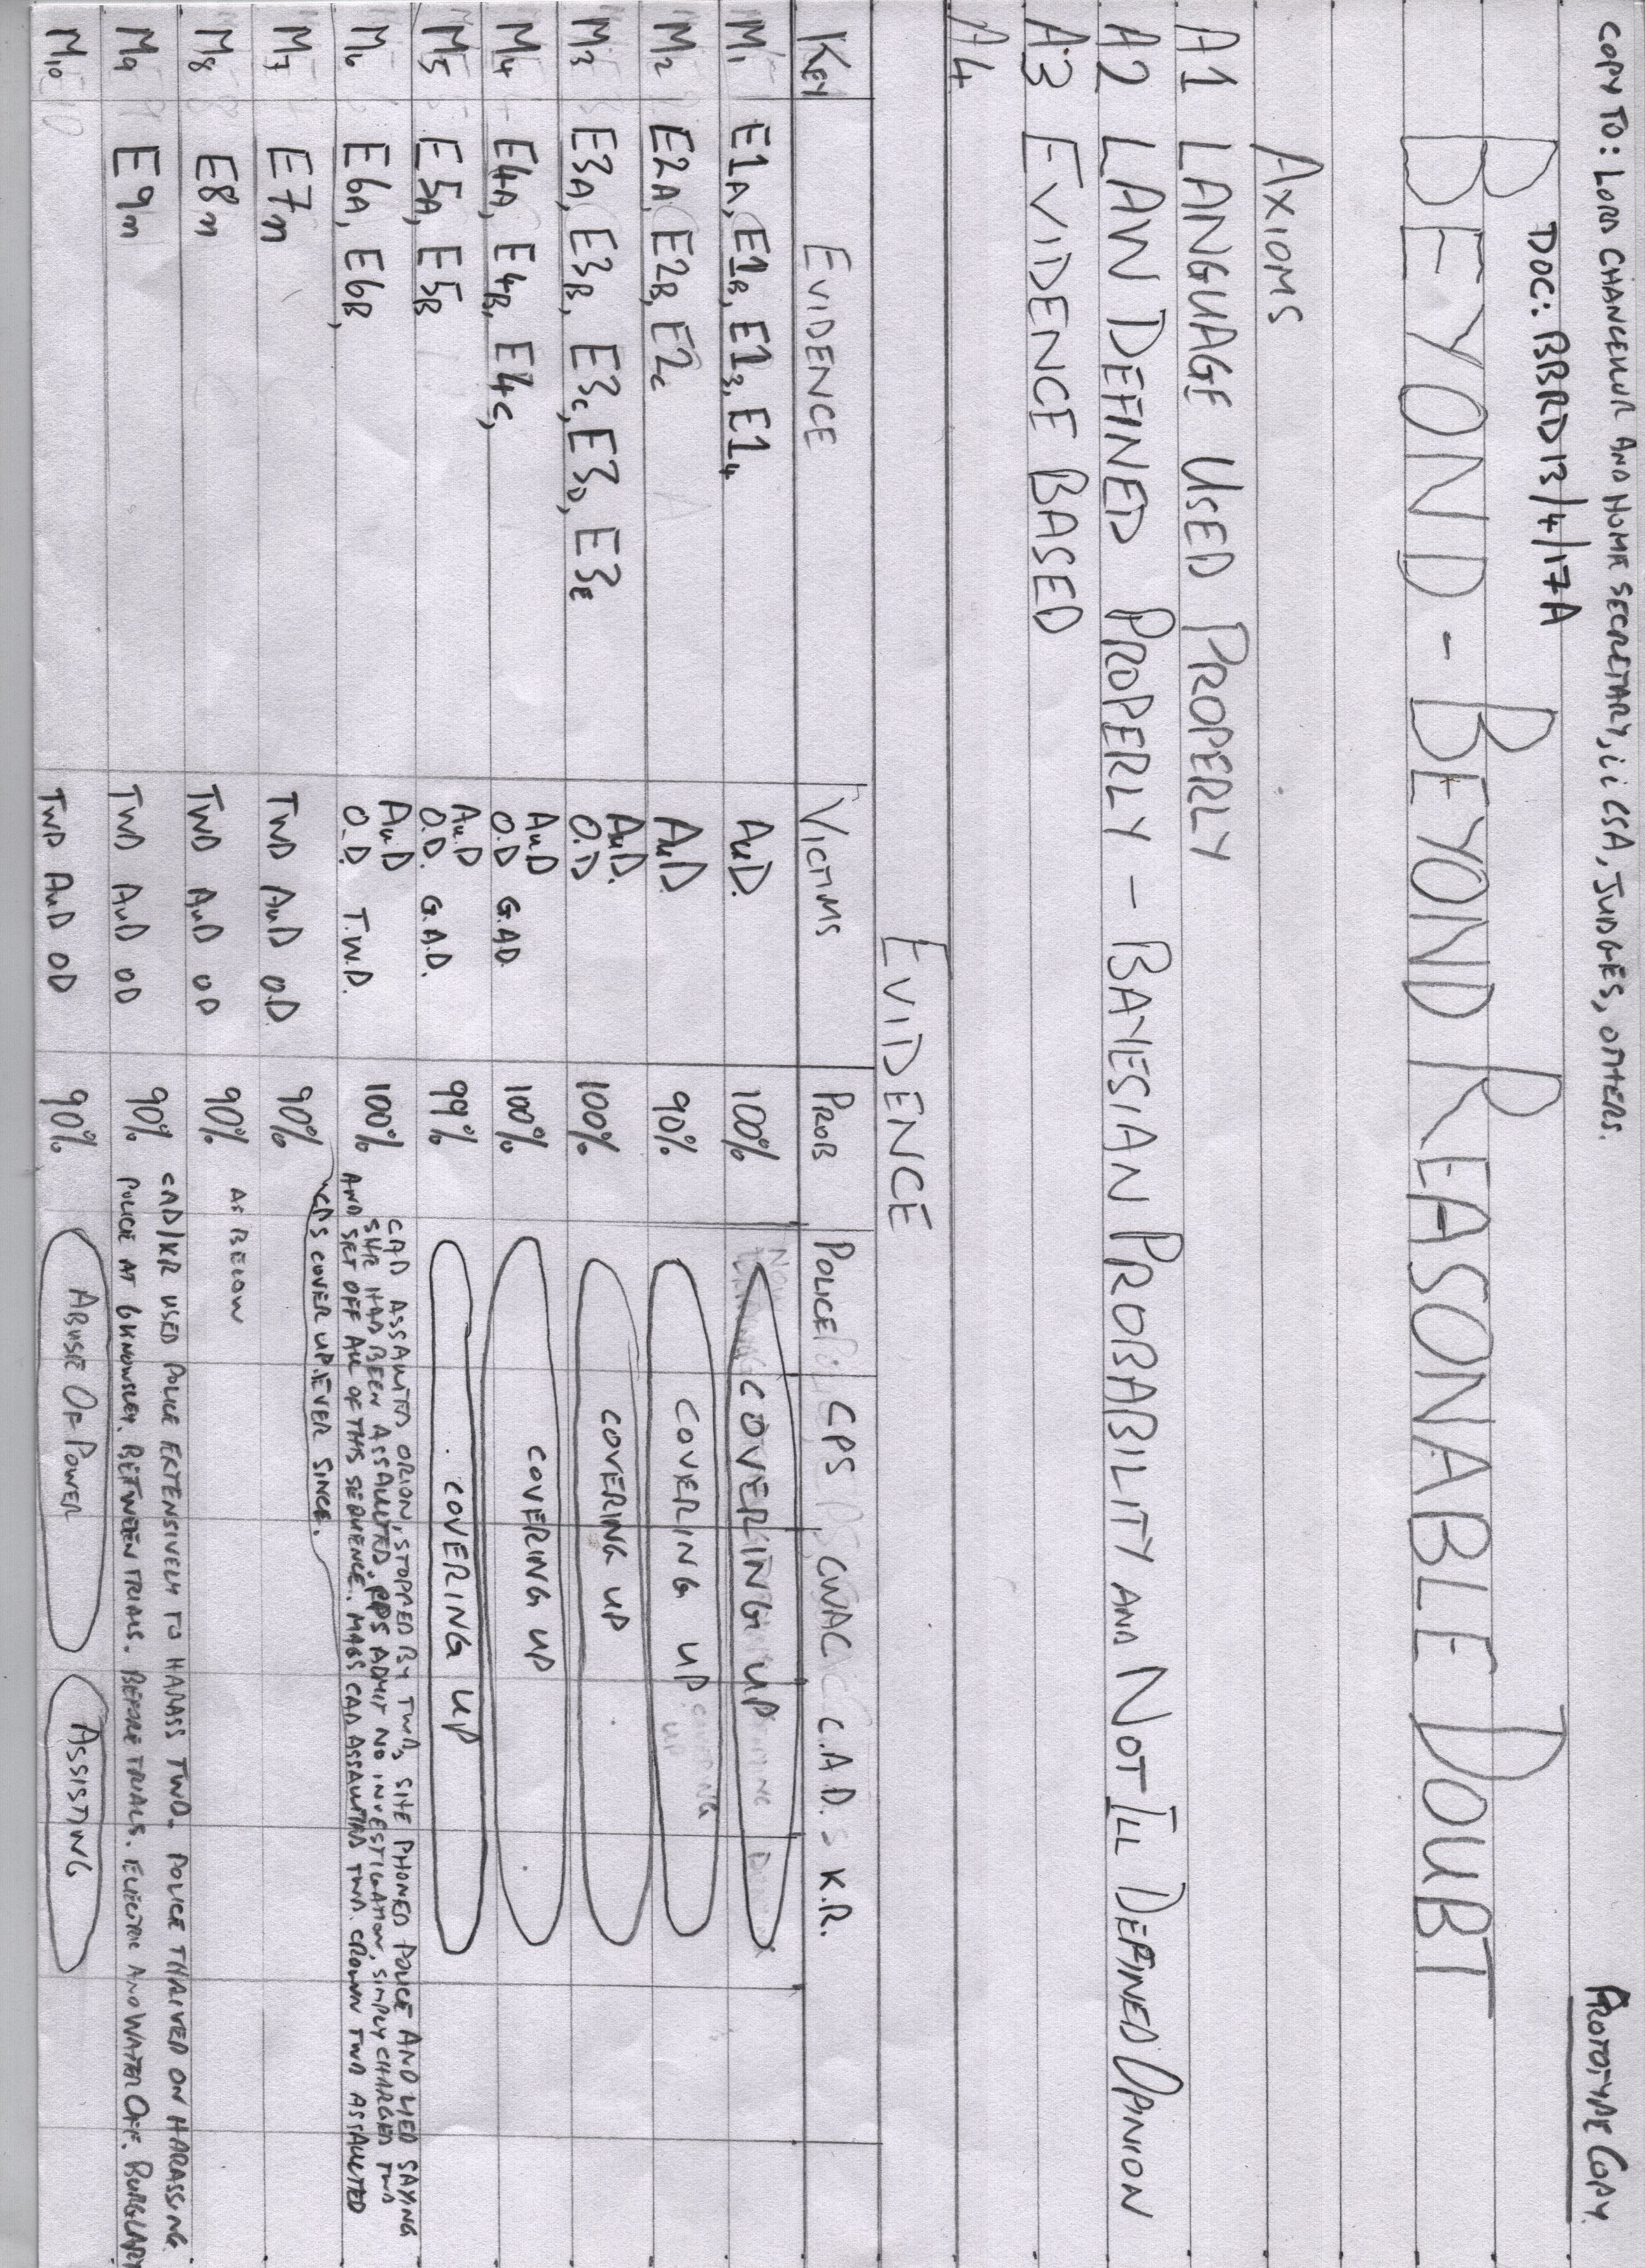 COPY TO: LORD CHANCELLOR AND HOME SECRETARY, ii CSA, JUDGES, OTHERS.
PROTOTYPE COPY
DOC: BBRD13/4/17A
BEYOND - BEYOND REASONABLE DOUBT
AXIOMS
A1 LANGUAGE USED PROPERLY
A2 LAW DEFINED PROPERLY - BAYESIAN PROBABILITY AND NOT ILL DEFINED OPINION
A3 EVIDENCE BASED
A4
EVIDENCE
KEY EVIDENCE VICTIMS PROB POLICE CPS CWAC C.A.D. K.R.
M1 E1A, E1B, E13, E14 AuD. 100% COVERING UP
M2 E2A, E2B, E2C AuD. 90% COVERING UP
M3 E3A, E3B, E3C, E3D, E3E AuD. O.D 100% COVERING UP
M4 E4A, E4B, E4C, AuD O.D G.AD. 100% COVERING UP
M5 E5A, E5B AuD O.D. G.A.D. 99% COVERING UP
M6 E6A, E6B, AuD O.D. T.W.D. 100%
CAD ASSAULTED ORION, STOPPED BY TWD, SHE PHONED POLICE AND LIED SAYING
SHE HAD BEEN ASSAULTED. CPS ADMIT NO INVESTIGATION, SIMPLY CHARGED TWD
AND SET OFF ALL OF THIS SEQUENCE. MAGS CAD ASSAULTED TWD. CROWN TWD ASSAULTED
CPS COVER UP EVER SINCE.
M7 E7n TWD AuD O.D 90%
M8 E8n TWD AuD OD 90% AS BELOW
CAD/KR USED POLICE EXTENSIVELY TO HARASS TWD. POLICE THRIVED ON HARASSING.
M9 E9n TWD AuD OD 90% POLICE AT 6 KNOWSLEY. BETWEEN TRIALS. BEFORE TRIALS. ELECTRIC AND WATER OFF. BURGLARY
M10 TWD AuD OD 90% ABUSE OF POWER ASSISTING